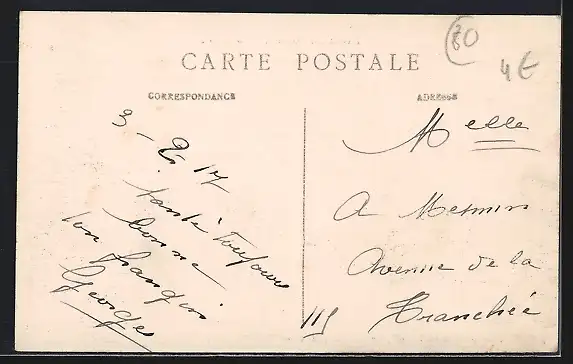 80
4€
CARTE POSTALE
CORRESPONDANCE
ADRESSE
3 - 2 17
santé Toujours
bonne
ton frangin
Georges
Melle
A Mesmin
Avenue de la
Tranchée
115